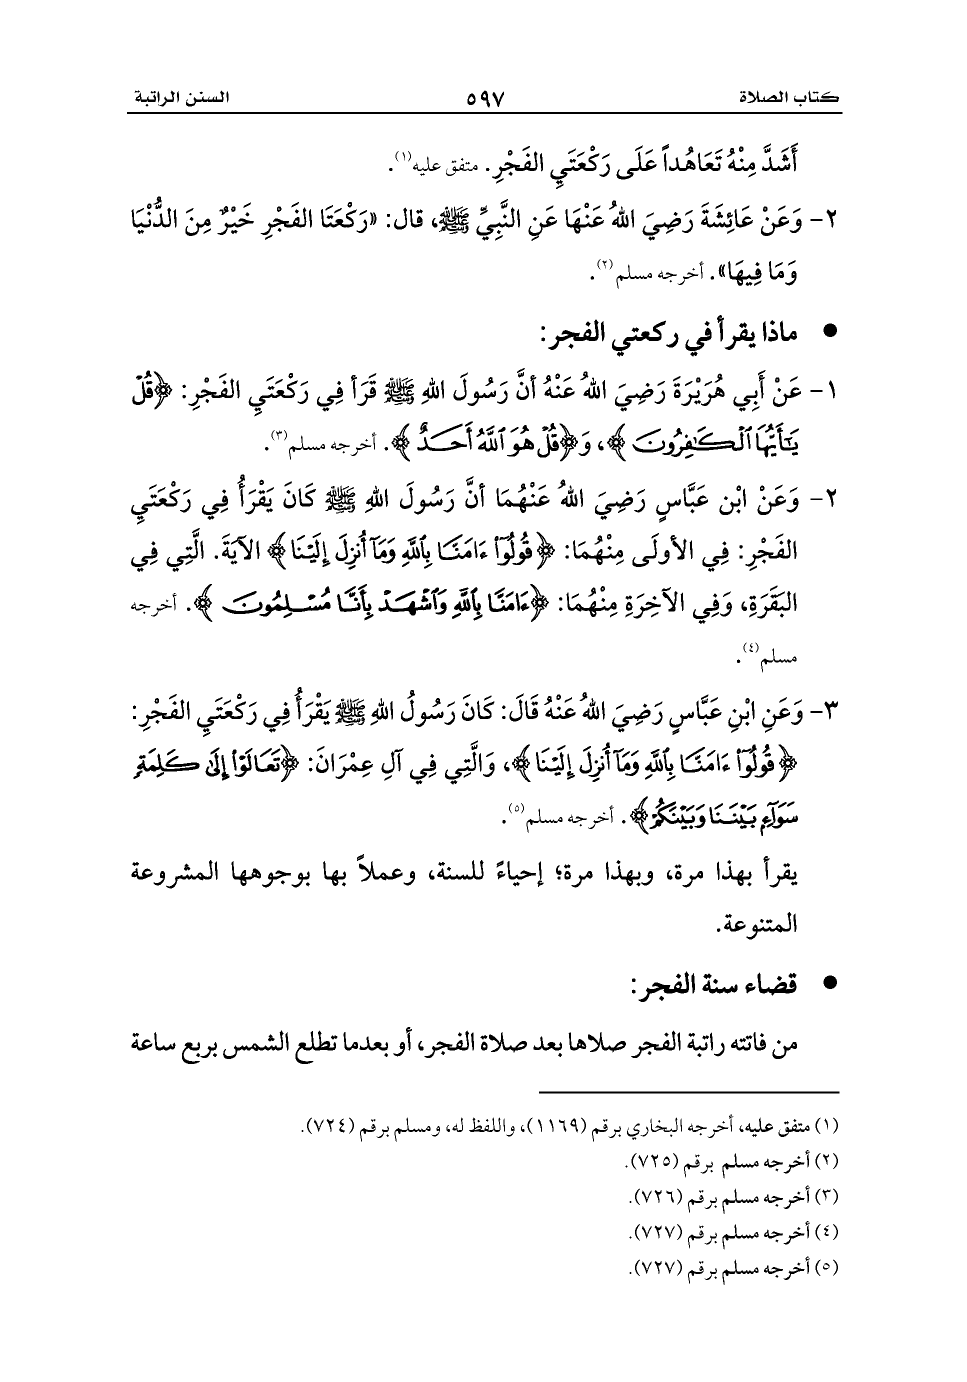 كتاب الصلاة ٥٩٧ السنن الراتبة
أَشَدَّ مِنْهُ تَعَاهُداً عَلَى رَكْعَتَيِ الفَجْرِ. متفق عليه(١).
٢- وَعَنْ عَائِشَةَ رَضِيَ اللهُ عَنْهَا عَنِ النَّبِيِّ ﷺ، قال: «رَكْعَتَا الفَجْرِ خَيْرٌ مِنَ الدُّنْيَا
وَمَا فِيهَا». أخرجه مسلم(٢).
● ماذا يقرأ في ركعتي الفجر:
١- عَنْ أَبِي هُرَيْرَةَ رَضِيَ اللهُ عَنْهُ أنَّ رَسُولَ اللهِ ﷺ قَرَأ فِي رَكْعَتَيِ الفَجْرِ: ﴿قُلْ
يَٰٓأَيُّهَا ٱلْكَٰفِرُونَ﴾، وَ﴿قُلْ هُوَ ٱللَّهُ أَحَدٌ﴾. أخرجه مسلم(٣).
٢- وَعَنْ ابْن عَبَّاسٍ رَضِيَ اللهُ عَنْهُمَا أنَّ رَسُولَ اللهِ ﷺ كَانَ يَقْرَأُ فِي رَكْعَتَيِ
الفَجْرِ: فِي الأولَى مِنْهُمَا: ﴿قُولُوٓا۟ ءَامَنَّا بِٱللَّهِ وَمَآ أُنزِلَ إِلَيْنَا﴾ الآيَةَ. الَّتِي فِي
البَقَرَةِ، وَفِي الآخِرَةِ مِنْهُمَا: ﴿ءَامَنَّا بِٱللَّهِ وَٱشْهَدْ بِأَنَّا مُسْلِمُونَ﴾. أخرجه
مسلم(٤).
٣- وَعَنِ ابْنِ عَبَّاسٍ رَضِيَ اللهُ عَنْهُ قَالَ: كَانَ رَسُولُ اللهِ ﷺ يَقْرَأُ فِي رَكْعَتَيِ الفَجْرِ:
﴿قُولُوٓا۟ ءَامَنَّا بِٱللَّهِ وَمَآ أُنزِلَ إِلَيْنَا﴾، وَالَّتِي فِي آلِ عِمْرَانَ: ﴿تَعَالَوْا۟ إِلَىٰ كَلِمَةٍ
سَوَآءٍۭ بَيْنَنَا وَبَيْنَكُمْ﴾. أخرجه مسلم(٥).
يقرأ بهذا مرة، وبهذا مرة؛ إحياءً للسنة، وعملاً بها بوجوهها المشروعة
المتنوعة.
● قضاء سنة الفجر:
من فاتته راتبة الفجر صلاها بعد صلاة الفجر، أو بعدما تطلع الشمس بربع ساعة
(١) متفق عليه، أخرجه البخاري برقم (١١٦٩)، واللفظ له، ومسلم برقم (٧٢٤).
(٢) أخرجه مسلم برقم (٧٢٥).
(٣) أخرجه مسلم برقم (٧٢٦).
(٤) أخرجه مسلم برقم (٧٢٧).
(٥) أخرجه مسلم برقم (٧٢٧).